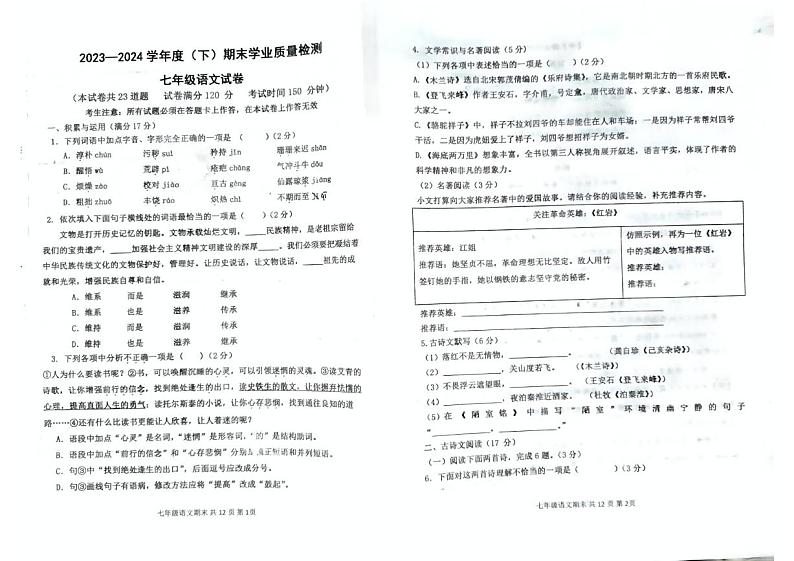 2023—2024 学年度（下）期末学业质量检测
七年级语文试卷
（本试卷共 23 道题 试卷满分 120 分 考试时间 150 分钟）
考生注意：所有试题必须在答题卡上作答，在本试卷上作答无效
一、积累与运用（满分 17 分）
1．下列词语中加点字音、字形完全正确的一项是（ ）（2 分）
A．淳朴 chún 污秽 suì 矜持 jīn 珊珊来迟 shān
B．醒悟 wù 荒僻 pì 疮疤 chāng 气冲斗牛 dǒu
C．烦燥 zào 校对 jiào 亘古 gèng 仙露琼浆 jiāng
D．粗拙 zhuō 丰饶 ráo 炽热 chì 不期而至
2．依次填入下面句子横线处的词语最恰当的一项是（ ）（2 分）
文物是打开历史记忆的钥匙。文物承载灿烂文明，_____民族精神，是老祖宗留给
我们的宝贵遗产，_____加强社会主义精神文明建设的深厚_____。我们必须要把凝结着
中华民族传统文化的文物保护好，管理好。让历史说话，让文物说话，_____祖先的成
就和光荣，增强民族自尊和自信。
A．维系 而是 滋润 继承
B．维系 也是 滋养 传承
C．维持 而是 滋润 传承
D．维持 也是 滋养 继承
3．下列各项中分析不正确一项是（ ）（2 分）
①人为什么要读书呢？②书，可以唤醒沉睡的心灵，可以引领迷惘的灵魂。③读艾青的
诗歌，让你增强前行的信念，找到绝处逢生的出口，读史铁生的散文，让你摒弃怯懦的
心理，提高直面人生的勇气；读托尔斯泰的小说，让你心存悲悯，找到通往良知的道
路……④还有什么比读书更能让人欣喜，让人着迷的呢？
A．语段中加点“心灵”是名词，“迷惘”是形容词，“的”是结构助词。
B．语段中加点“前行的信念”和“心存悲悯”分别为偏正短语和并列短语。
C．句③中“找到绝处逢生的出口”，后面逗号应改成分号。
D．句③画线句子有语病，修改方法应将“提高”改成“鼓起”。
七年级语文期末 共 12 页 第 1页
4．文学常识与名著阅读（5 分）
（1）下列各项中表述恰当的一项是（ ）（2 分）
A．《木兰诗》选自北宋郭茂倩编的《乐府诗集》，它是南北朝时期北方的一首乐府民歌。
B．《登飞来峰》作者王安石，字介甫，号定盦，唐代政治家、文学家、思想家，唐宋八
大家之一。
C．《骆驼祥子》中，祥子不拉刘四爷的车却能住在人和车场：一是因为祥子常帮刘四爷
干活，二是因为虎妞爱上了祥子，刘四爷想招祥子为女婿。
D．《海底两万里》想象丰富，全书以第三人称视角展开叙述，语言平实，体现了作者的
科学精神和非凡的想象力。
（2）名著阅读（3 分）
小文打算向大家推荐名著中的爱国故事，请结合你的阅读经验，补充推荐内容。
关注革命英雄：《红岩》
推荐英雄：江姐
推荐语：她坚贞不屈，革命理想无比坚定。敌人用竹
签钉她的手指，她以钢铁的意志坚守党的秘密。
仿照示例，再为一位《红岩》
中的英雄人物写推荐语。
推荐英雄：
推荐语：
推荐英雄：
推荐语：
5.古诗文默写（6 分）
（1）落红不是无情物，__________。 （龚自珍《己亥杂诗》）
（2）__________，关山度若飞。 （《木兰诗》）
（3）不畏浮云遮望眼，__________。 （王安石《登飞来峰》）
（4）__________，夜泊秦淮近酒家。 （杜牧《泊秦淮》）
（5）在《陋室铭》中描写“陋室”环境清幽宁静的句子
“__________，__________”。
二、古诗文阅读（17 分）
（一）阅读下面两首诗，完成 6 题。（3 分）
6．下面对这两首诗理解不恰当的一项是（ ）（3 分）
七年级语文期末 共 12 页 第 2页